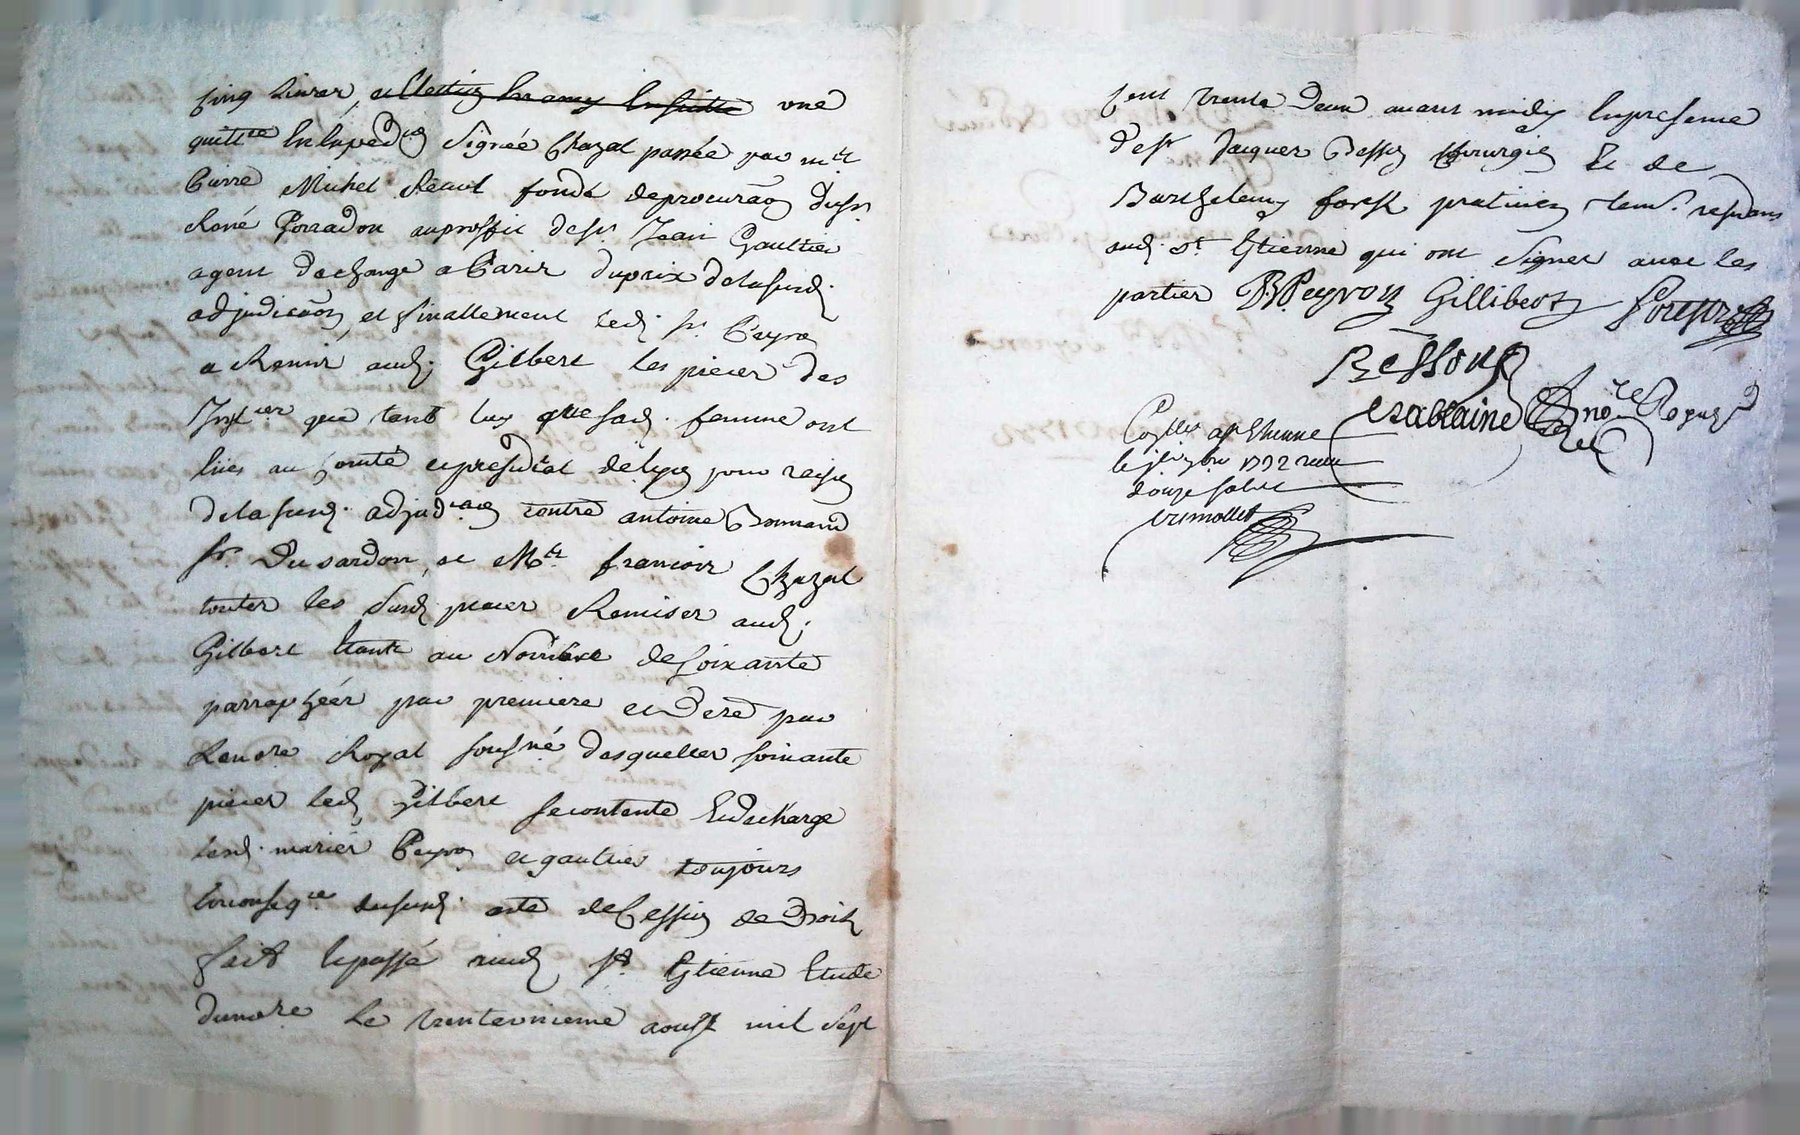 cinq Livres, et une
quitt.ce Enlupedon Signée Chazal passée par m.tre
Pierre Michel fondé deprocuraon dusr.
René Gorradon auproffit desr. Jean Gaultier
agent dechange a Paris duprix delasusd.
adjudicaon, et finallement led. sr. Peyron
a Remis aud. Gilbert les pieces des
que tant luy que sad. femme ont
au Comté
delasusd. adjud.on contre antoine Bonnand
sr. Du sardon, et M.tre francois Chazal
toutes les susd. pieces Remises aud.
Gilbert Etant au Nombre desoixante
parraphées par premiere et Dere par
Lenore Royal sousné desquelles soixante
pieces led. Gilbert secontente Et decharge
lesd. mariés Peyron et gautier toujours
Enconseqce. dususd. acte deCession de Droits
fait et passé aud. St. Etienne Etude
dunore Le trenteunieme aoust mil Sept
cent trente Deux avant midy Enpresence
desr. Jacques Besson Chirurgien Et de
Barthelemy forest praticien
aud. St. Etienne qui ont Signés avec les
parties P. Peyron Gillibert forest
Besson
nore Royal
a St Etienne
le 1792 reçu
douze sols